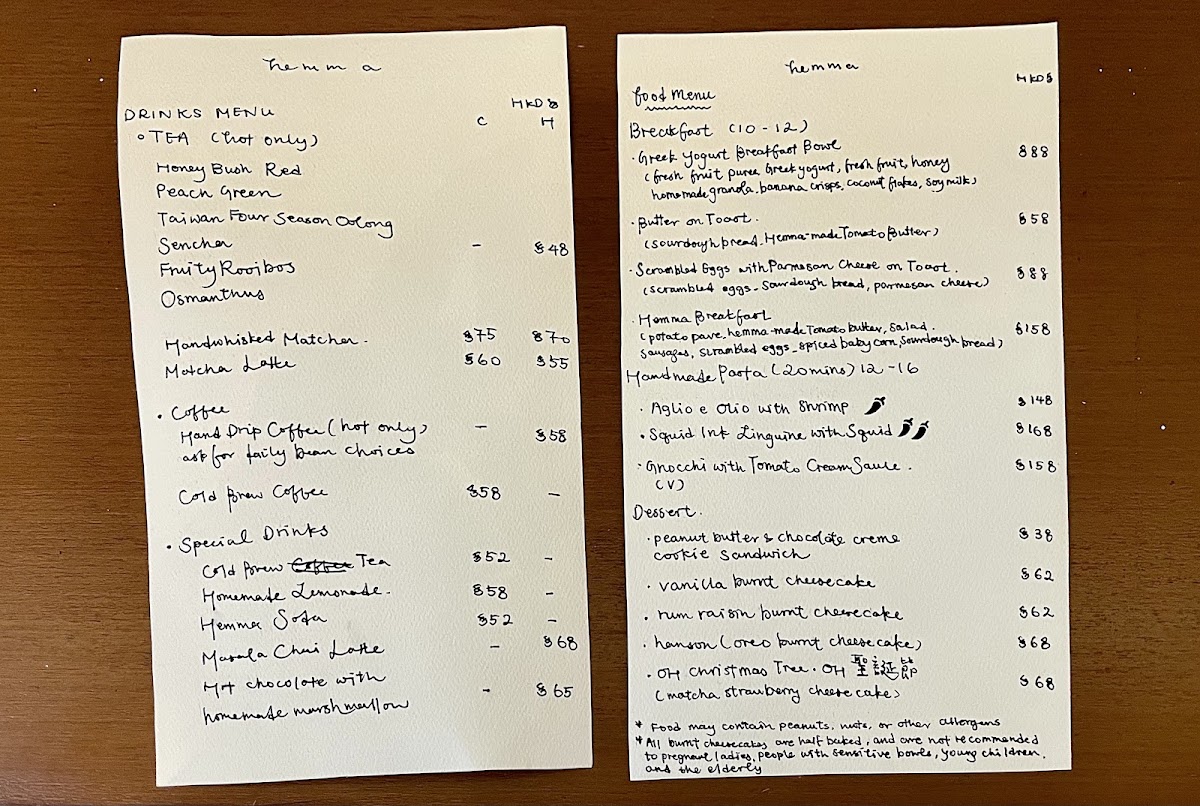 hemma
DRINKS MENU
HKD $
C H
• TEA (hot only)
Honey Bush Red
Peach Green
Taiwan Four Season Oolong
Sencha - $48
Fruity Rooibos
Osmanthus
Handwhisked Matcha. $75 $70
Matcha Latte $60 $55
• Coffee
Hand Drip Coffee (hot only) - $58
ask for daily bean choices
Cold Brew Coffee $58 -
• Special Drinks
Cold Brew Tea $52 -
Homemade Lemonade. $58 -
Hemma Soda $52 -
Masala Chai Latte - $68
Hot chocolate with
homemade marshmallow - $65
hemma
HKD $
food Menu
Breakfast (10-12)
• Greek Yogurt Breakfast Bowl $88
(fresh fruit puree, Greek yogurt, fresh fruit, honey
homemade granola, banana crisps, coconut flakes, soy milk)
• Butter on Toast. $58
(sourdough bread, Hemma-made Tomato Butter)
• Scrambled Eggs with Parmesan Cheese on Toast. $88
(scrambled eggs, sourdough bread, parmesan cheese)
• Hemma Breakfast $158
(potato pave, hemma-made Tomato butter, salad.
sausages, scrambled eggs, spiced baby corn, sourdough bread)
Handmade Pasta (20mins) 12-16
• Aglio e Olio with Shrimp $148
• Squid Ink Linguine with Squid $168
• Gnocchi with Tomato Cream Sauce. $158
(V)
Dessert.
• peanut butter & chocolate creme $38
cookie sandwich
• vanilla burnt cheesecake $62
• rum raisin burnt cheesecake $62
• hanson (oreo burnt cheesecake) $68
• OH Christmas Tree • OH 聖誕節 $68
(matcha strawberry cheesecake)
* Food may contain peanuts, nuts, or other allergens
* All burnt cheesecakes are half baked, and are not recommended
to pregnant ladies, people with sensitive bowls, young children.
and the elderly